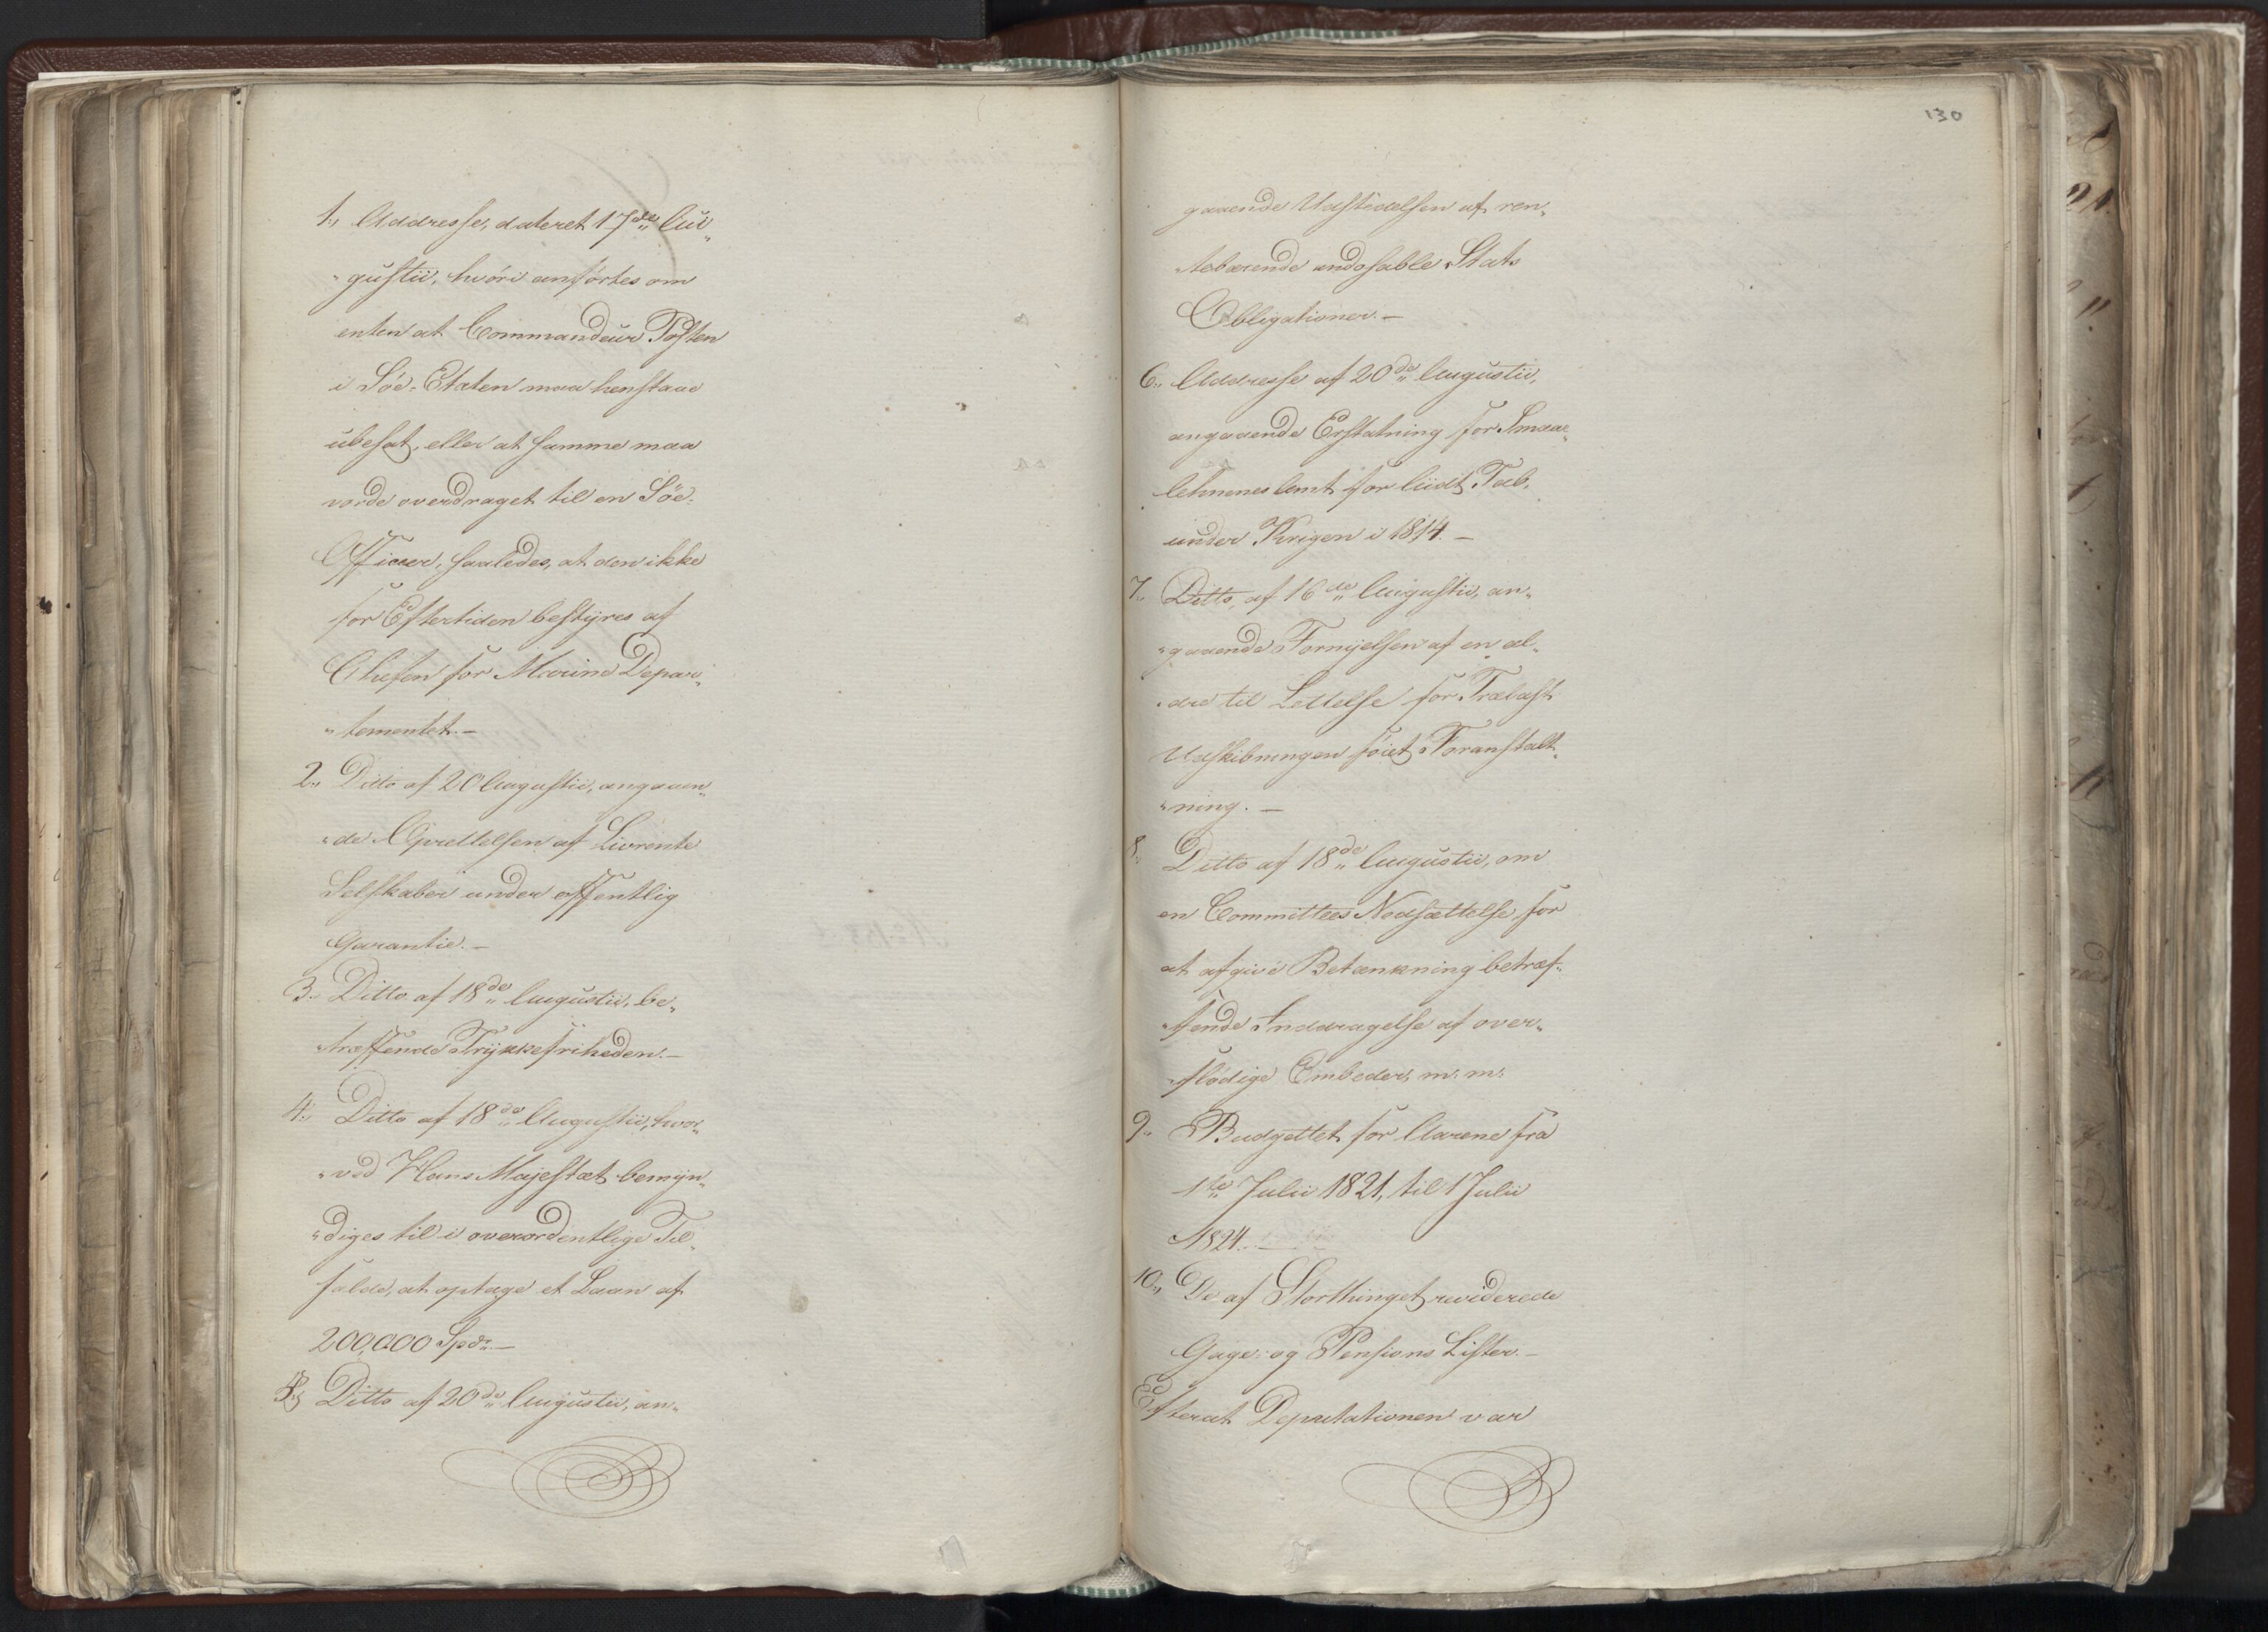 1., Addresse, dateret 17de Au„
„gustii, hvóri anførtes om
enten at Commandeur Posten
i Söe-Etaten maa henstaae
ubesat, eller at samme maa
vorde overdraget til en Söe-
Officier, saaledes, at den ikke
for Eftertiden bestÿres af
Chefen for Marine Depar„
„tementet.—
2., Ditto af 20 Augustii, angaaen„
„de Oprettelsen af Livrente
Selskaber under offentlig
Garantie.—
3., Ditto af 18de Augustii, be„
„træffende Trÿkkefriheden.—
4., Ditto af 18de Augustii, hvor„
„ved Hans Majestæt bemÿn„
„diges til i overordentlige Til„
fælde, at optage et Laan af
200,000 Spdr.—
5., Ditto af 20de Augustii, an„
130
gaaende Udstædelsen af ren„
tebærende undosable Stats
Obligationer.—
6., Addresse af 20de Augustii,
angaaende Erstatning for Smaae„
lehnenes Amt for liidt Tab,
under Krigen i 1814.—
7., Ditto, af 16de Augustii, an„
„gaaende Fornÿelsen af en æl„
„dre til Lettelse for Trælast
Udskibningen föiet Foranstalt„
„ning.—
8., Ditto af 18de Augustii, om
en Committees Nedsættelse for
at afgive Betænkning betræf„
„fende Inddragelse af over„
„flödige Embeder, m: m:
9., Budgettet for Aarene fra
1te Julii 1821, til 1 Julii
1824.—
10., De af Storthinget reviderede
Gage- og Pensions Lister.—
Efterat Deputationen var